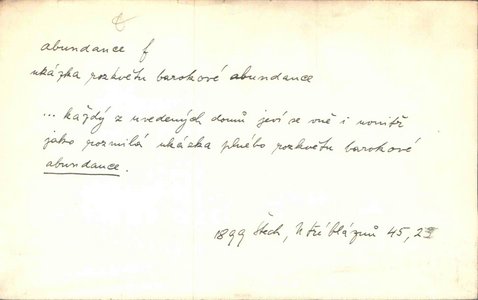 abundance f
ukázka rozkvětu barokové abundance
... každý z uvedených domů jeví se vně i uvnitř
jako rozmilá ukázka plného rozkvětu barokové
abundance.
1899 Štech, U tří bláznů 45, 2